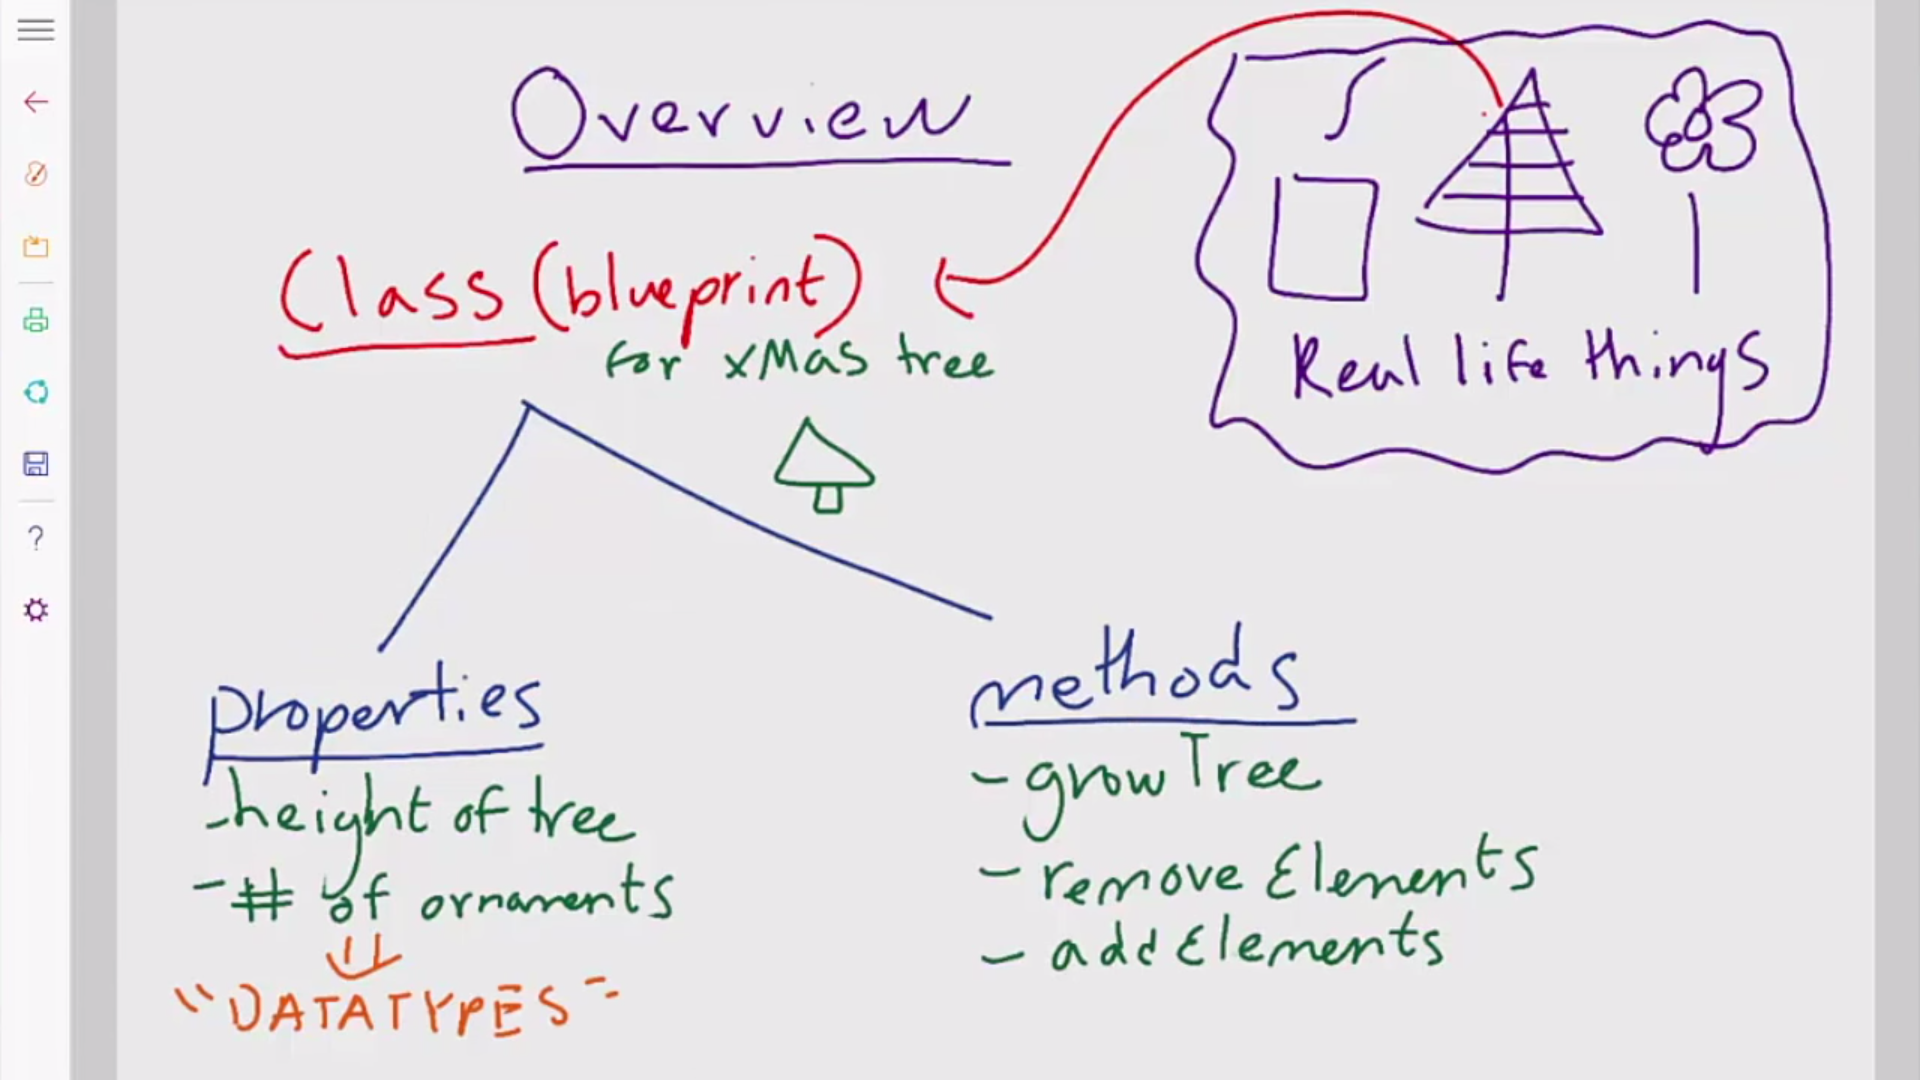 Overview
Class (blueprint)
for xMas tree
Real life things
properties
-height of tree
-# of ornaments
"DATATYPES"
methods
-growTree
-remove Elements
-addElements
?